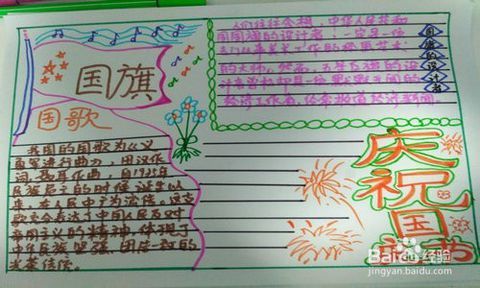 国旗
国歌
我国的国歌为《义
勇军进行曲》,田汉作
词,聂耳作曲,自1935年
民族危亡的时候诞生以
来,在人民中广为流传。这支
歌充分表达了中国人民反对
帝国主义的精神,体现了
中华民族坚强、团结一致的
光荣传统。
人们往往会想,中华人民共和
国国旗的设计者,一定是一位
专门从事美术工作的极具艺术
的大师,然而,五星红旗的设
计者曾 却是一位默默无闻的
经济工作者,
国旗的设计者
庆祝国
Baidu 经验
jingyan.baidu.com